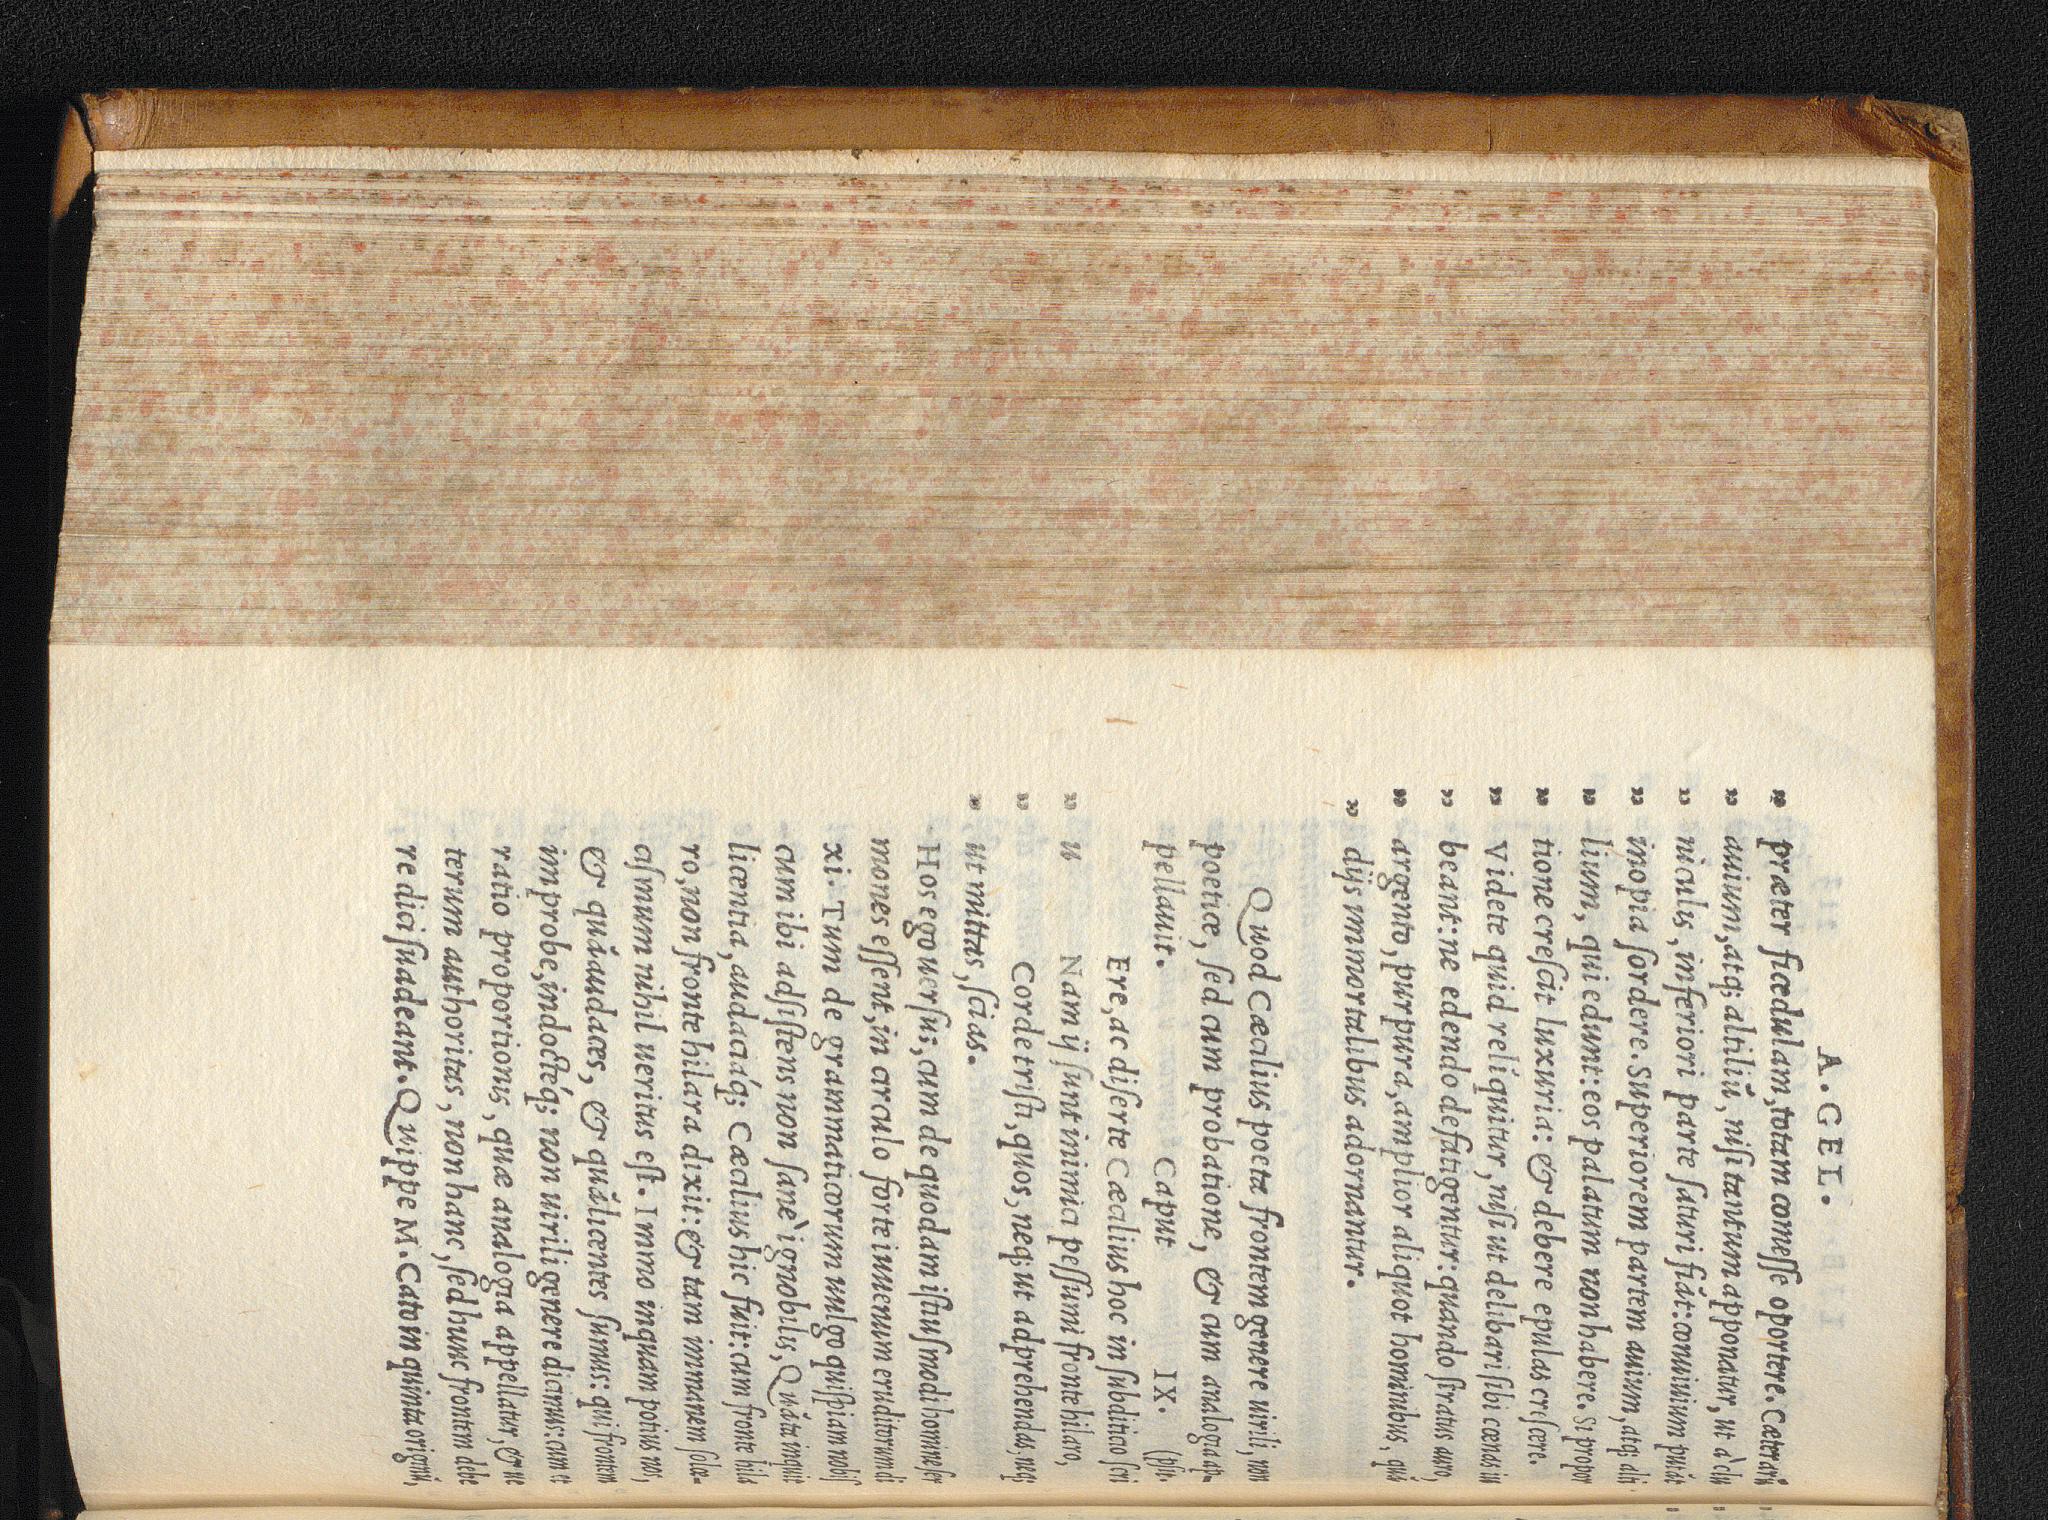 A. GEL.
” præter ficedulam, totam comesse oportere. Cæterarũ
” auium, atq; altiliũ, nisi tantum apponatur, ut à clu
” niculis, inferiori parte saturi fiãt: conuiuium putãt
” inopia sordere. Superiorem partem auium, atq; alti
” lium, qui edunt: eos palatum non habere. Si propor
” tione crescit luxuria: & debere epulas crescere.
” Videte quid relíquitur, nisi ut delibari sibi coenas iu
” beant: ne edendo defatigentur: quando stratus auro,
” argento, purpura, amplior aliquot hominibus, quã
” dijs immortalibus adornantur.
Quod Cæcilius poeta frontem genere uirili, non
poetice, sed cum probatione, & cum analogia ap-
pellauit. Caput IX. (psit.
Ere, ac diserte Cæcilius hoc in subditiuo scri
” u Nam ij sunt inimici pessumi fronte hilaro,
” Corde tristi, quos, neq; ut adprehendas, neq;
” ut mittas, scias.
Hos ego uersus, cum de quodam istiusmodi homine ser
mones essent, in circulo forte iuuenum eruditorum di
xi. Tum de grammaticorum uulgo quispiam nobis
cum ibi adsistens non sanè ignobilis, Quãta inquit
licentia, audaciáq; Cæcilius hic fuit: cum fronte hila
ro, non fronte hilara dixit: & tam immanem solœ-
cismum nihil ueritus est. Immo inquam potius nos,
& quá audaces, & quá licentes sumus: qui frontem
improbe, indocteq́; non uirili genere dicimus: cum et
ratio proportionis, quæ analogia appellatur, & ue
terum authoritas, non hanc, sed hunc frontem debe
re dici suadeant. Quippe M. Cato in quinta originũ,